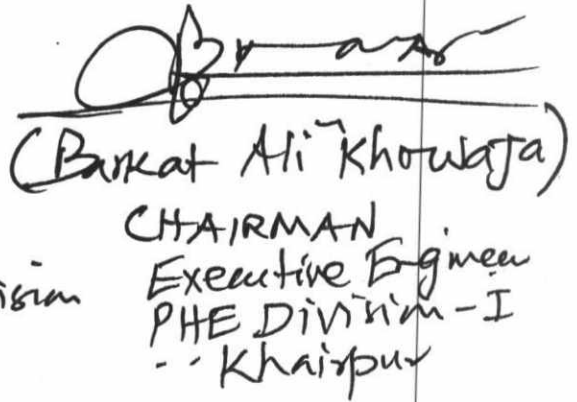 (Barkat Ali Khowaja)
CHAIRMAN
Executive Engineer
PHE Division-I
Khairpur